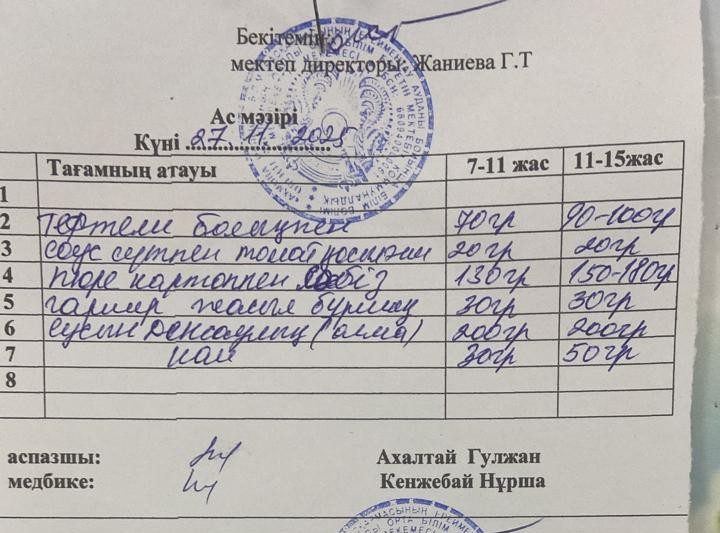 Бекітемін
мектеп директоры: Жаниева Г.Т
Ас мәзірі
Күні 27. 11. 2025
Тағамның атауы 7-11 жас 11-15жас
1
2 Тефтели болгұпен 70гр 90-100гр
3 соус сүтпен томат қосылған 20гр 20гр
4 пюре картоппен сәбіз 130гр 150-180гр
5 гарнир жасыл бұршақ 30гр 30гр
6 сусын Денсаулық (алма) 200гр 200гр
7 нан 30гр 50гр
8
аспазшы: Ахалтай Гулжан
медбике: Кенжебай Нұрша